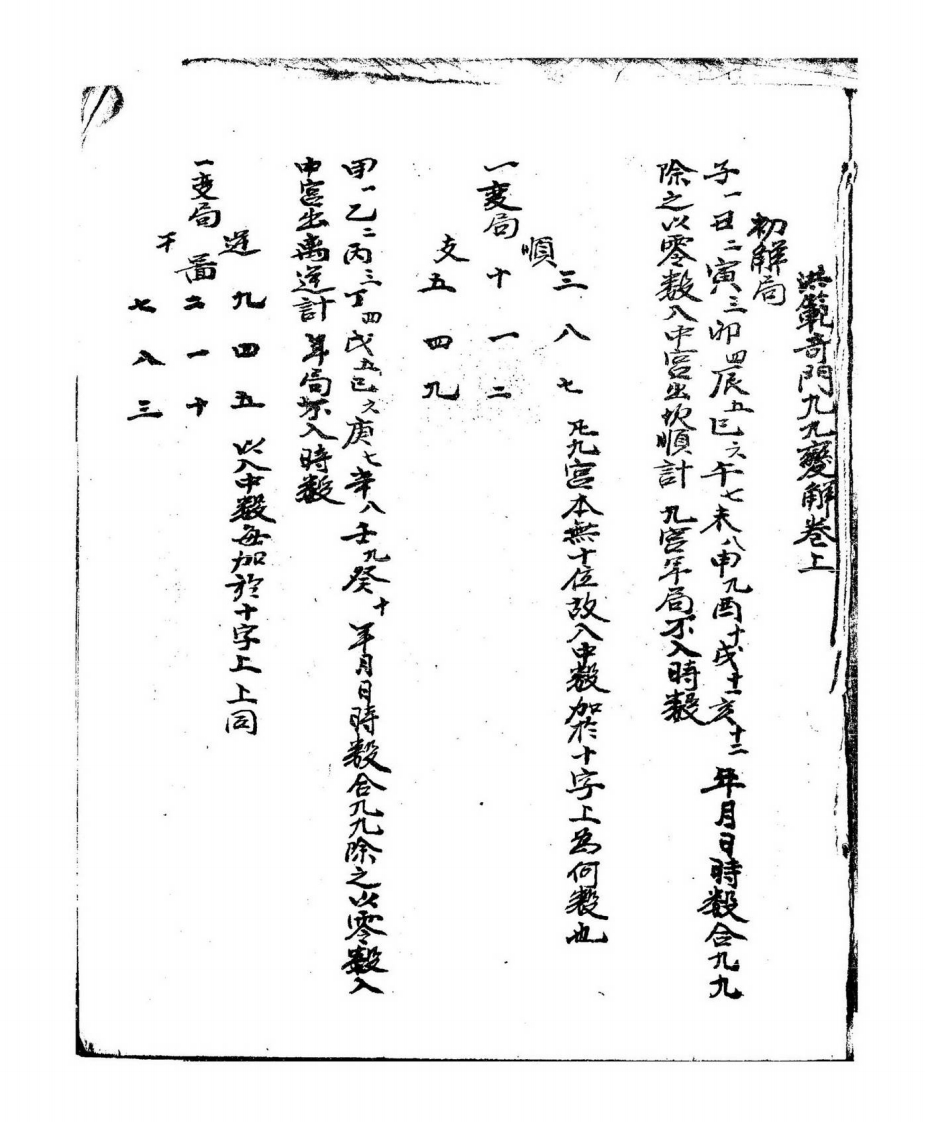 洪範奇門九九變解卷上
初解局
子一丑二寅三卯四辰五巳六午七未八申九酉十戌十一亥十二 年月日時數合九九
除之以零數入中宮出坎順計 九宮年局不入時數
三 八 七 凡九宮本無十位故入中數加於十字上為何數也
順
一變局 十 一 二
支 五 四 九
甲一乙二丙三丁四戊五己六庚七辛八壬九癸十 年月日時數合九九除之以零數入
中宮出离逆計 年局不入時數
逆 九 四 五 以入中數每加於十字上 上同
一变局 圖 六 一 十
干 七 八 三